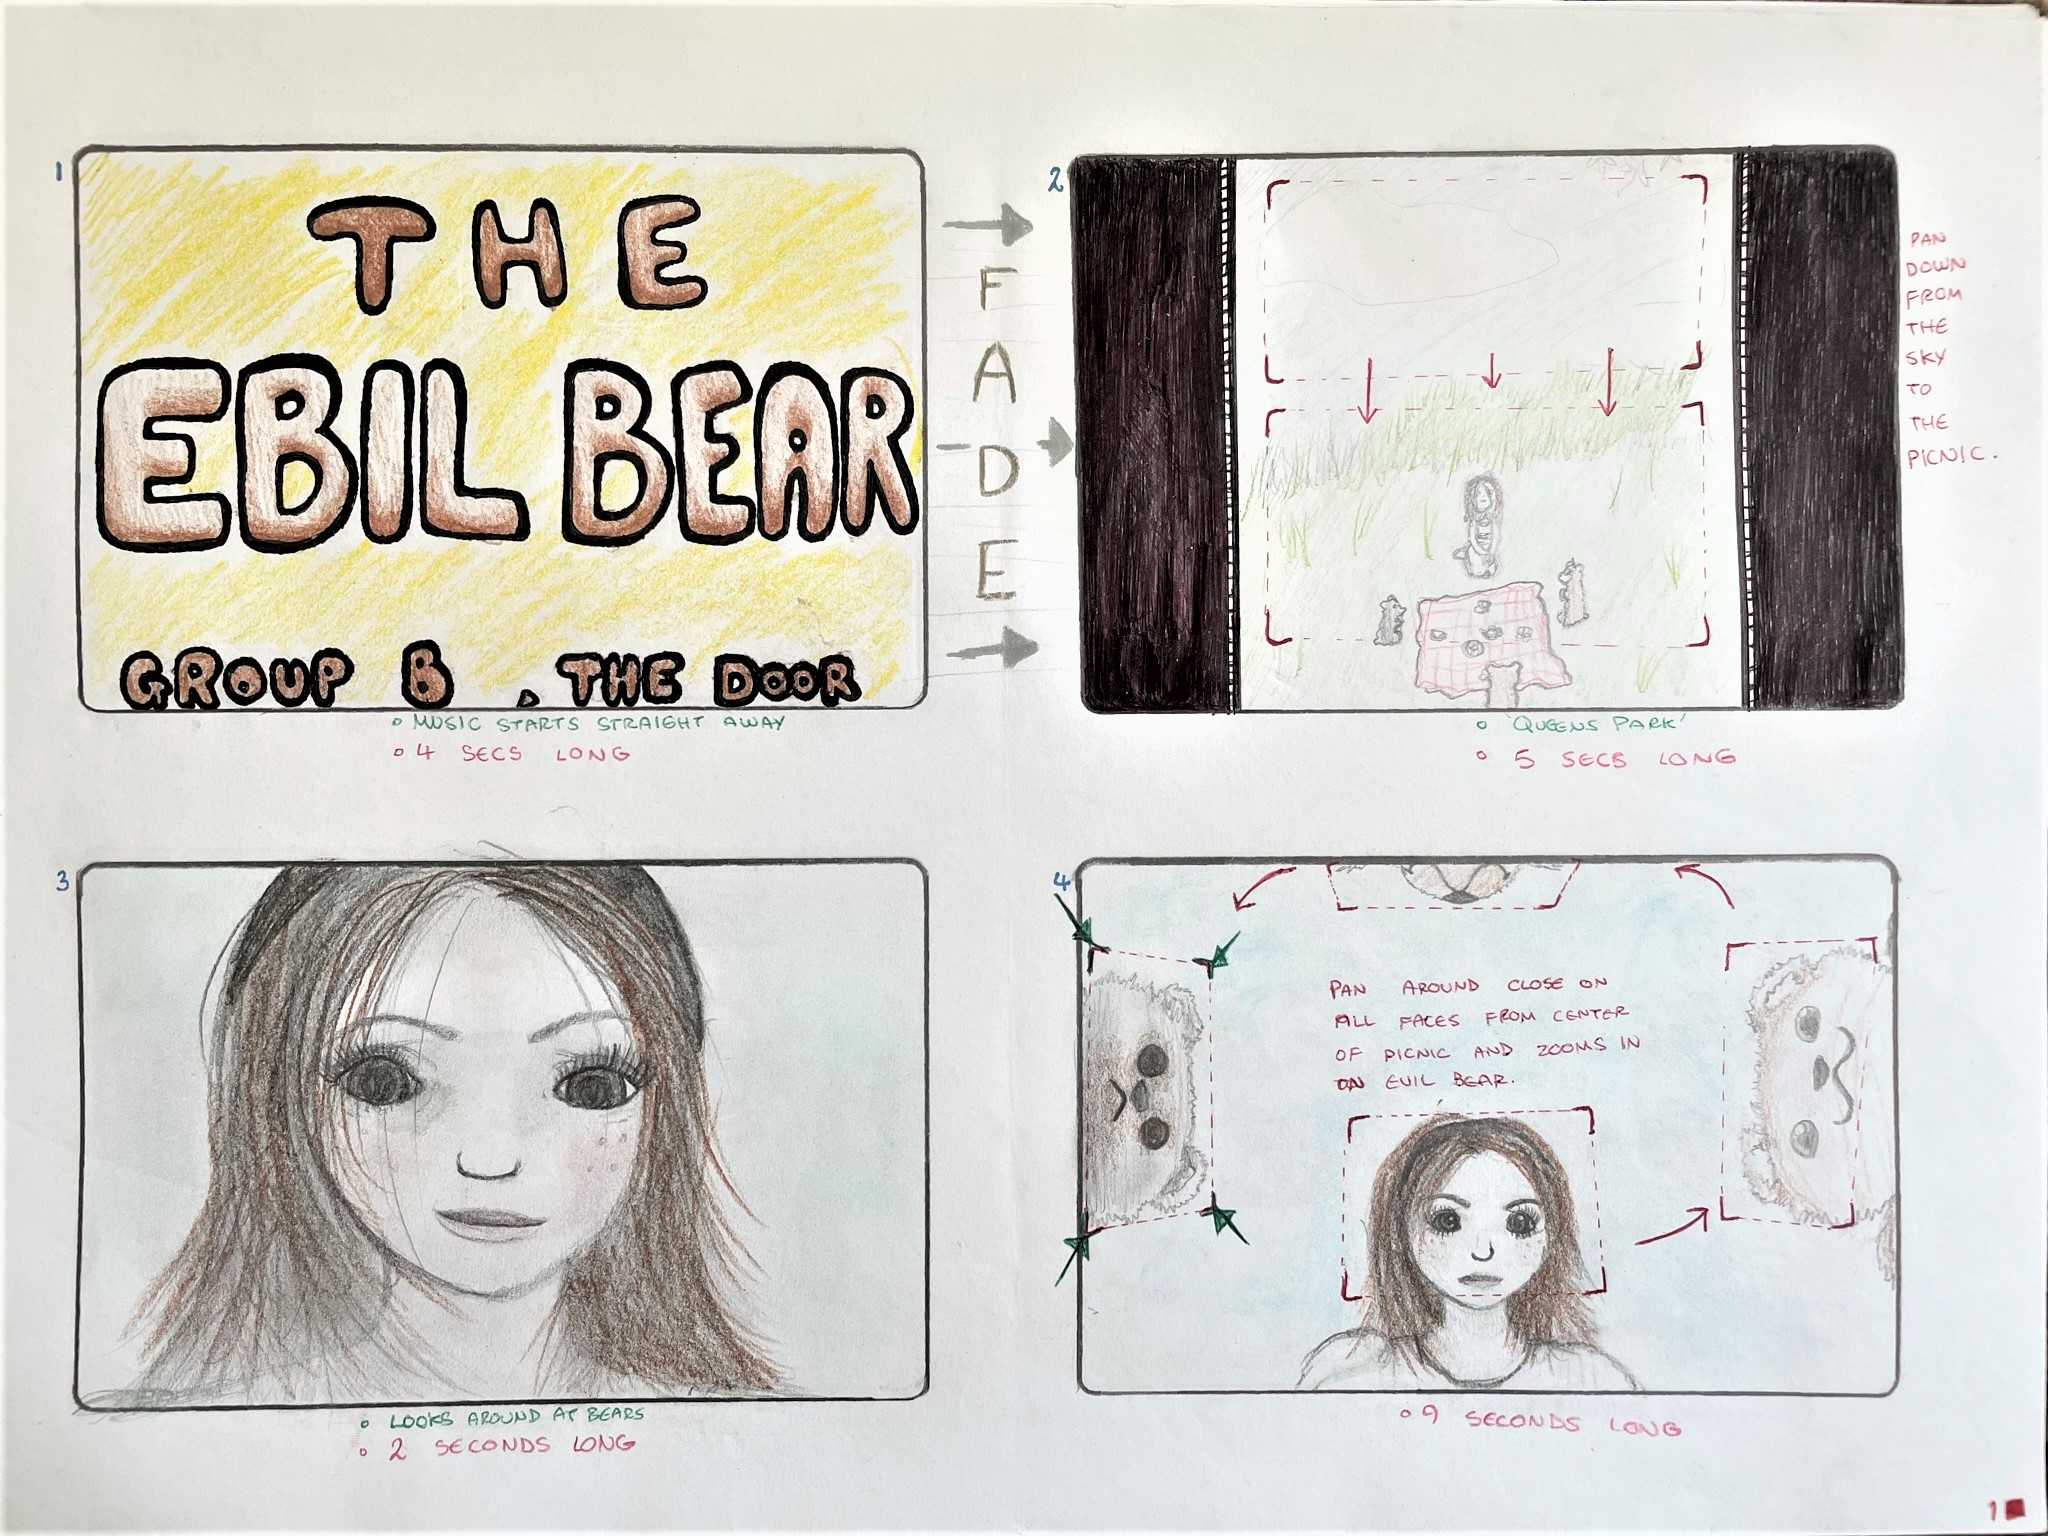 1
THE
EBIL BEAR
GROUP B , THE DOOR
o MUSIC STARTS STRAIGHT AWAY
o 4 SECS LONG
FADE
2
PAN
DOWN
FROM
THE
SKY
TO
THE
PICNIC.
o 'QUEENS PARK'
o 5 SECS LONG
3
o LOOKS AROUND AT BEARS
o 2 SECONDS LONG
4
PAN AROUND CLOSE ON
ALL FACES FROM CENTER
OF PICNIC AND ZOOMS IN
ON EVIL BEAR.
o 9 SECONDS LONG
1